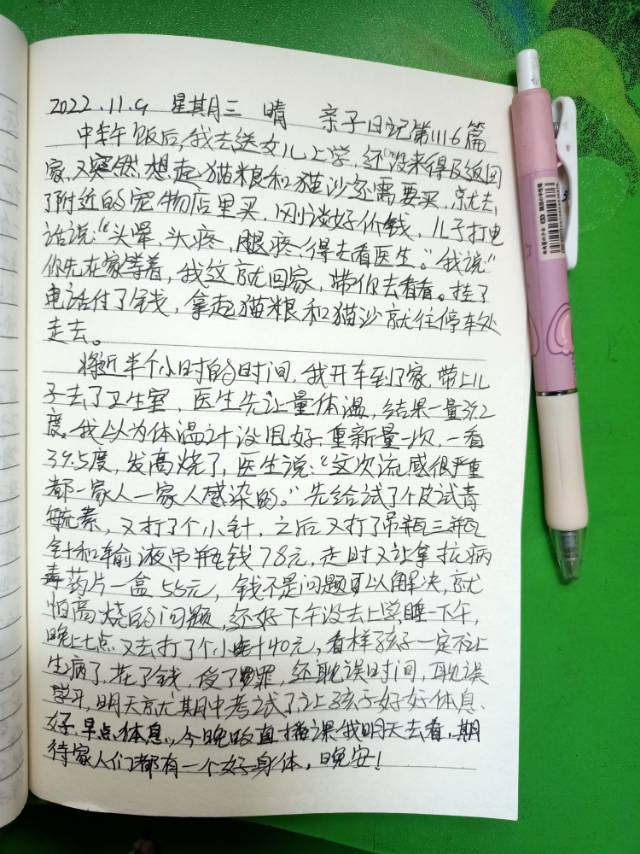 2022.11.9 星期三 晴 亲子日记第1116篇
中午饭后,我去送女儿上学,还没来得及返回
家,又突然想起猫粮和猫沙还需要买,就去
了附近的宠物店里买,刚说好价钱,儿子打电
话说:“头晕,头疼,腿疼,得去看医生。”我说“
你先在家等着,我这就回家,带你去看看。挂了
电话付了钱,拿起猫粮和猫沙就往停车处
走去。
将近半个小时的时间,我开车到了家,带上儿
子去了卫生室,医生先让量体温,结果一量39.2
度,我以为体温计没甩好,重新量一次,一看
39.5度,发高烧了,医生说:“这次流感很严重
都一家人一家人感染的。”先给试了个皮试青
霉素,又打了个小针,之后又打了吊瓶三瓶
针和输液吊瓶钱78元,走时又让拿抗病
毒药片一盒55元,钱不是问题可以解决,就
怕高烧的问题,还好下午没去上学,睡一下午,
晚上七点又去打了个小针40元,看样孩子一定不让
生病了,花了钱,受了罪,还耽误时间,耽误
学习,明天就尤期中考试了,让孩子好好休息
好,早点休息,今晚的直播课我明天去看,期
待家人们都有一个好身体,晚安!